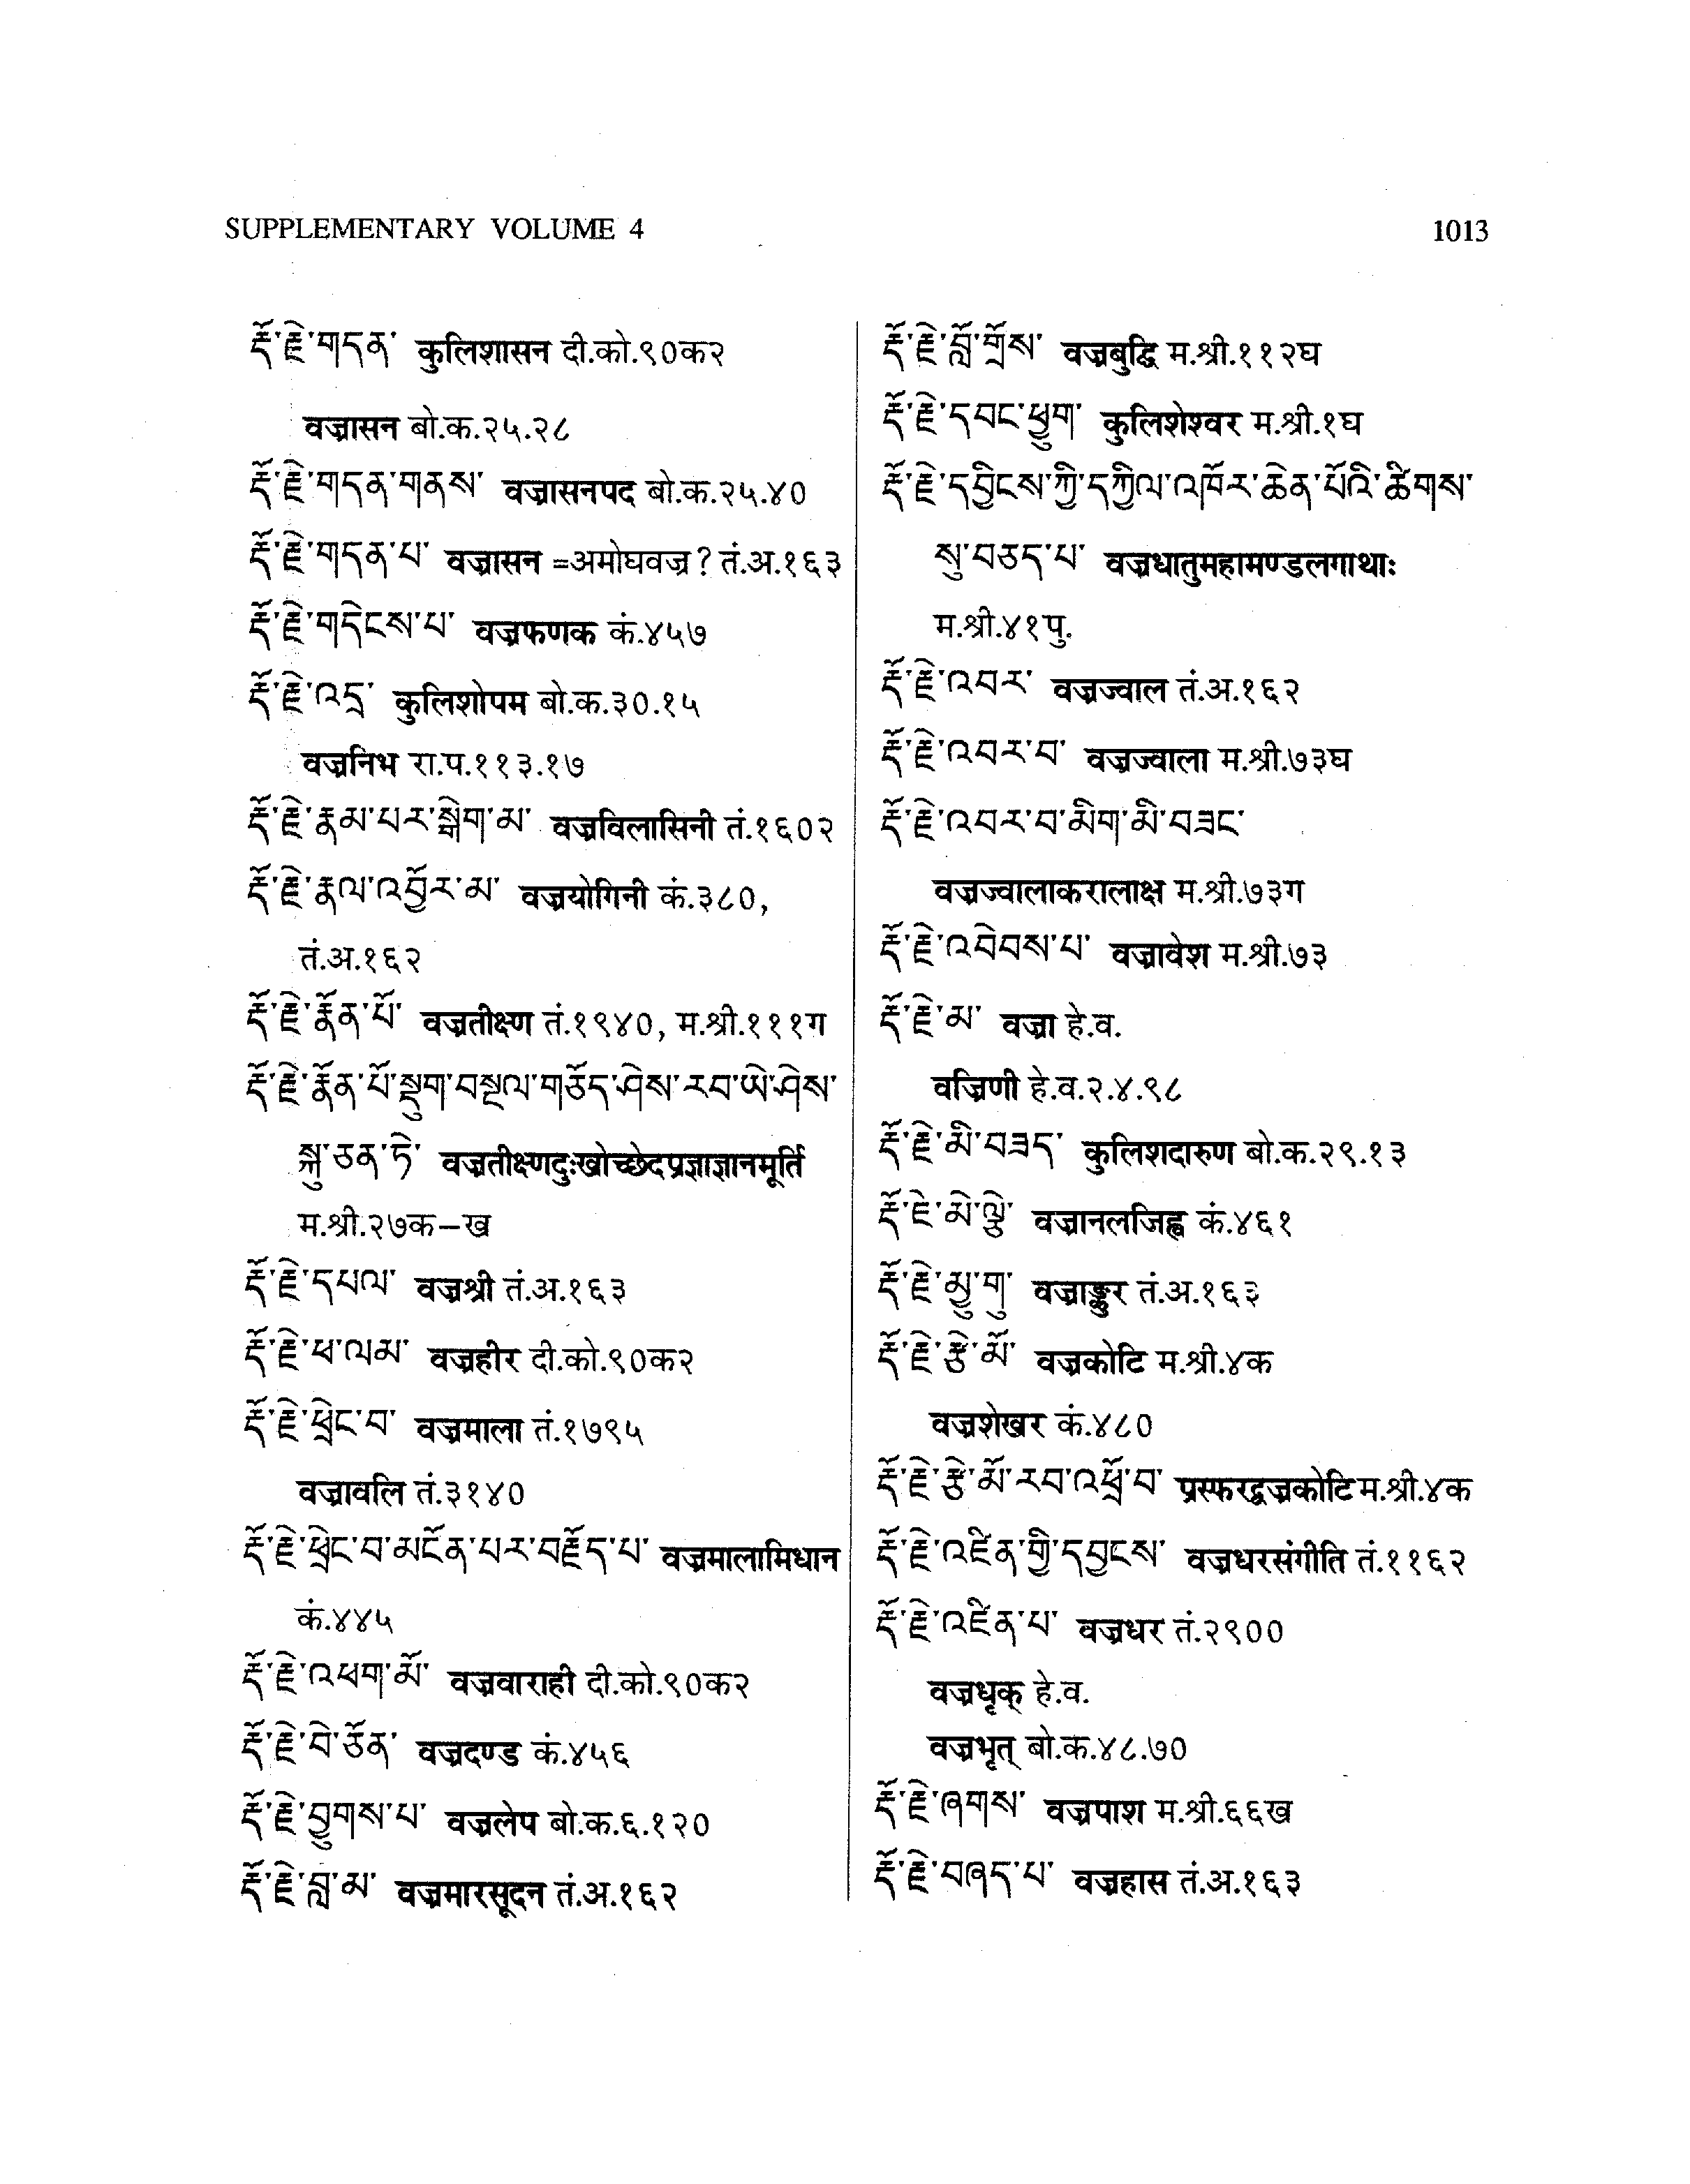 SUPPLEMENTARY VOLUME 4 1013
རྡོ་རྗེ་གདན་ कुलिशासन दी.को.९०क२
वज्रासन बो.क.२५.२८
རྡོ་རྗེ་གདན་གནས་ वज्रासनपद बो.क.२५.४०
རྡོ་རྗེ་གདན་པ་ वज्रासन =अमोघवज्र? तं.अ.१६३
རྡོ་རྗེ་གདེངས་པ་ वज्रफणक कं.४५७
རྡོ་རྗེ་འདྲ་ कुलिशोपम बो.क.३०.१५
वज्रनिभ रा.प.११३.१७
རྡོ་རྗེ་རྣམ་པར་སྒེག་མ་ वज्रविलासिनी तं.१६०२
རྡོ་རྗེ་རྣལ་འབྱོར་མ་ वज्रयोगिनी कं.३८०,
तं.अ.१६२
རྡོ་རྗེ་རྣོན་པོ་ वज्रतीक्ष्ण तं.१९४०, म.श्री.१११ग
རྡོ་རྗེ་རྣོན་པོ་སྡུག་བསྔལ་གཅོད་ཤེས་རབ་ཡེ་ཤེས་
སྐུ་ཅན་ཏེ་ वज्रतीक्ष्णदुःखोच्छेदप्रज्ञाज्ञानमूर्ति
म.श्री.२७क–ख
རྡོ་རྗེ་དཔལ་ वज्रश्री तं.अ.१६३
རྡོ་རྗེ་ཕ་ལམ་ वज्रहीर दी.को.९०क२
རྡོ་རྗེ་ཕྲེང་བ་ वज्रमाला तं.१७९५
वज्रावलि तं.३१४०
རྡོ་རྗེ་ཕྲེང་བ་མངོན་པར་བརྗོད་པ་ वज्रमालामिधान
कं.४४५
རྡོ་རྗེ་འཕག་མོ་ वज्रवाराही दी.को.९०क२
རྡོ་རྗེ་བེ་ཅོན་ वज्रदण्ड कं.४५६
རྡོ་རྗེ་བྱུགས་པ་ वज्रलेप बो.क.६.१२०
རྡོ་རྗེ་བླ་མ་ वज्रमारसूदन तं.अ.१६२
རྡོ་རྗེ་བློ་གྲོས་ वज्रबुद्धि म.श्री.११२घ
རྡོ་རྗེ་དབང་ཕྱུག་ कुलिशेश्वर म.श्री.१घ
རྡོ་རྗེ་དབྱིངས་ཀྱི་དཀྱིལ་འཁོར་ཆེན་པོའི་ཚིགས་
སུ་བཅད་པ་ वज्रधातुमहामण्डलगाथाः
म.श्री.४१पु.
རྡོ་རྗེ་འབར་ वज्रज्वाल तं.अ.१६२
རྡོ་རྗེ་འབར་བ་ वज्रज्वाला म.श्री.७३घ
རྡོ་རྗེ་འབར་བ་མིག་མི་བཟང་
वज्रज्वालाकरालाक्ष म.श्री.७३ग
རྡོ་རྗེ་འབེབས་པ་ वज्रावेश म.श्री.७३
རྡོ་རྗེ་མ་ वज्रा हे.व.
वज्रिणी हे.व.२.४.९८
རྡོ་རྗེ་མི་བཟད་ कुलिशदारुण बो.क.२९.१३
རྡོ་རྗེ་མེ་ལྕེ་ वज्रानलजिह्व कं.४६१
རྡོ་རྗེ་མྱུ་གུ་ वज्राङ्कुर तं.अ.१६३
རྡོ་རྗེ་རྩེ་མོ་ वज्रकोटि म.श्री.४क
वज्रशेखर कं.४८०
རྡོ་རྗེ་རྩེ་མོ་རབ་འཕྲོ་བ་ प्रस्फरद्वज्रकोटि म.श्री.४क
རྡོ་རྗེ་འཛིན་གྱི་དབྱངས་ वज्रधरसंगीति तं.११६२
རྡོ་རྗེ་འཛིན་པ་ वज्रधर तं.२९००
वज्रधृक् हे.व.
वज्रभृत् बो.क.४८.७०
རྡོ་རྗེ་ཞགས་ वज्रपाश म.श्री.६६ख
རྡོ་རྗེ་བཞད་པ་ वज्रहास तं.अ.१६३